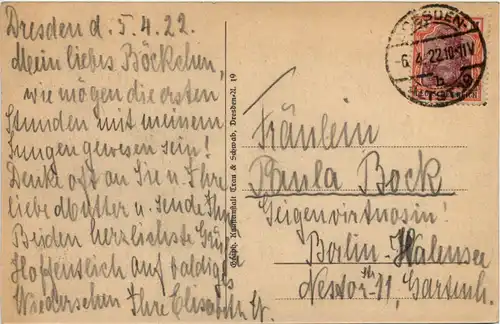 Dresden d. 5.4.22.
Mein liebes Böckchen,
wie mögen die ersten
Stunden mit meinem
Jungen gewesen sein!
Denke oft an Sie u. Ihre
liebe Mutter u. sende Ihnen
Beiden herzlichste Grüße
Hoffentlich auf baldiges
Wiedersehen Ihre Elisabeth
Graph. Kunstanstalt & Schwab, Dresden-A. 19
DRESDEN
-6.4.22.10-11V
ALTST. 
Fräulein
Paula Bock
Geigenvirtuosin!
Berlin-Halensee
Nestor-Str. 11, Gartenh.